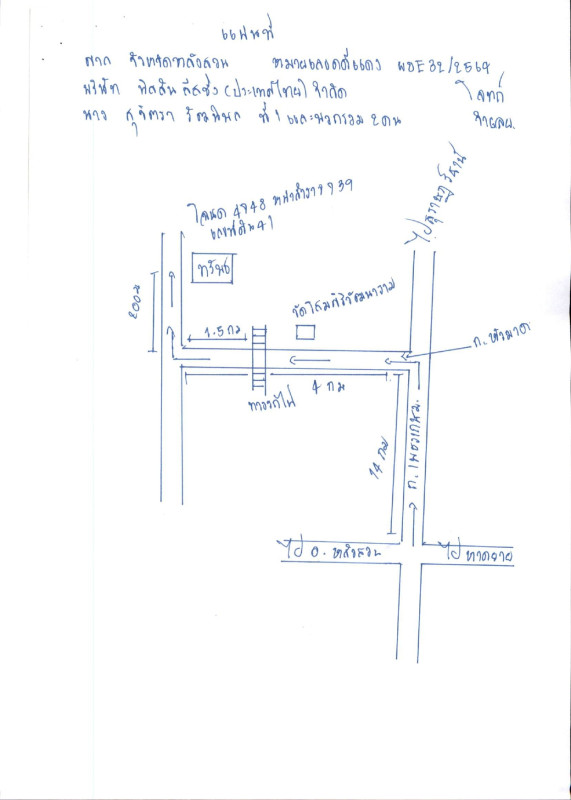 แผนที่
ศาล จังหวัดหลังสวน หมายเลขคดีแดง ผบE 32/2564
บริษัท นิสสัน ลีสซิ่ง (ประเทศไทย) จำกัด โจทก์
นาง สุจิตรา ที่ 1 และพวกรวม 2 คน จำเลย
ไปสุราษฎร์ธานี
โฉนด 4948 หน้าสำรวจ 939
เลขที่ดิน 41
ทรัพย์
200 ม
1.5 กม
ทางรถไฟ
4 กม
ถ. เพชรเกษม
14 กม
ไป อ. หลังสวน
ไป หาดยาย